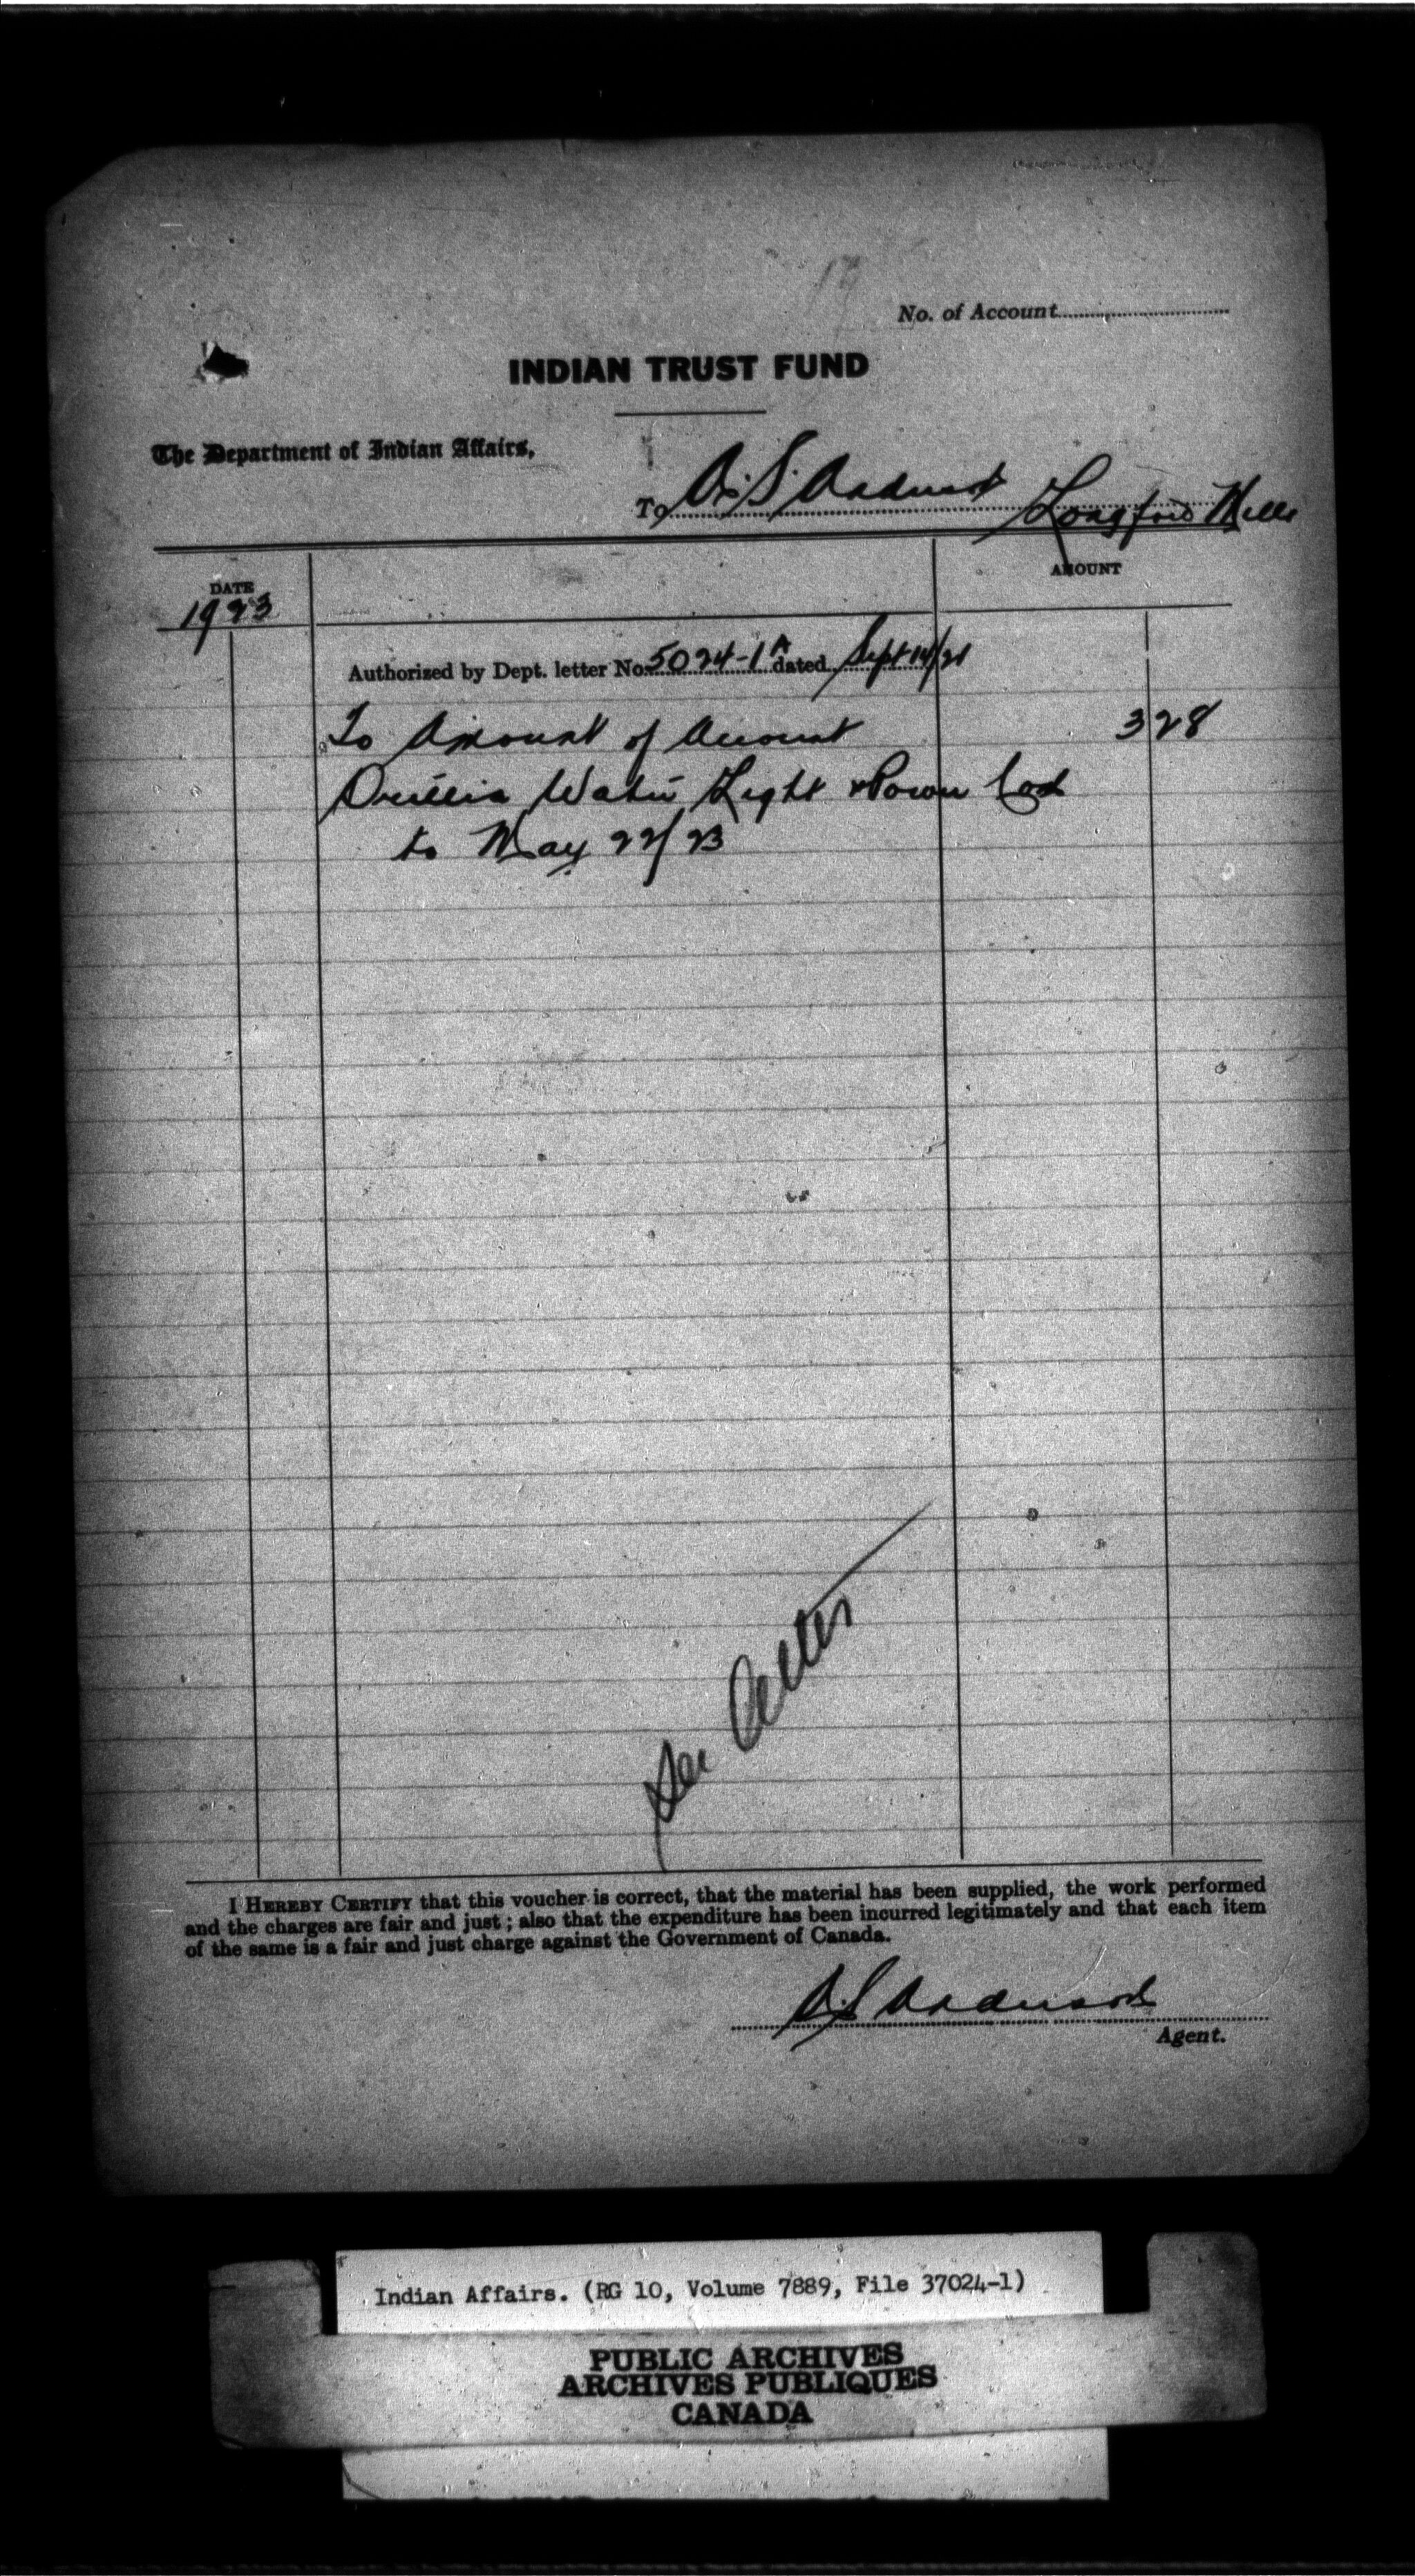 No. of Account
INDIAN TRUST FUND
The Department of Indian Affairs,
To A. S. Anderson Longford Mills
DATE
AMOUNT
1923
Authorized by Dept. letter No. 5024-1A dated Sept 14/21
To Amount of Account 3 28
Orillia Water Light & Power
to May 22/23
See
I HEREBY CERTIFY that this voucher is correct, that the material has been supplied, the work performed
and the charges are fair and just; also that the expenditure has been incurred legitimately and that each item
of the same is a fair and just charge against the Government of Canada.
A S Anderson
Agent.
Indian Affairs. (RG 10, Volume 7889, File 37024-1)
PUBLIC ARCHIVES
ARCHIVES PUBLIQUES
CANADA